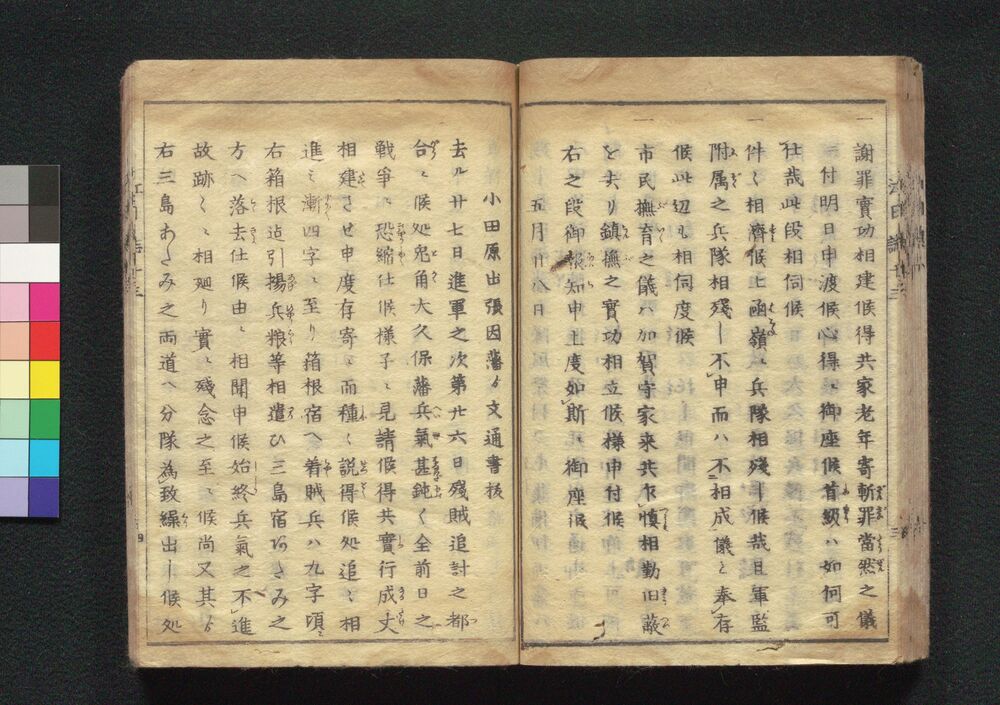 一 謝罪實功相建候得共家老年寄斬罪當然之儀
ニ付明日申渡候心得ニ御座候首級ハ如何可
仕哉此段相伺候
一 件々相濟候上函嶺ニ兵隊相殘シ候哉且軍監
附属之兵隊相殘シ不申而ハ不相成儀と奉存
候此辺も相伺度候
一 市民撫育之儀ハ加賀守家来共下慎相勤旧蔽
を去り鎮撫之實功相立候様申付候
右之段御報知申上度如斯ニ御座候
五月廿八日
小田原出張因藩ゟ文通書抜
去ル廿七日進軍之次第廿六日殘賊追討之都
合ニ候処兎角大久保藩兵氣甚鈍く全前日之
戦争ニ恐縮仕候様子ニ見請候得共實行成丈
相建させ申度存寄ニ而種々説得候処追々相
進ミ漸四字ニ至り箱根宿へ着賊兵ハ九字頃ニ
右箱根迠引揚兵粮等相遣ひ三島宿あたみ之
方へ落去仕候由ニ相聞申候始終兵氣之不進
故跡々ニ相廻り實ニ殘念之至ニ候尚又其ゟ
右三島あたみ之両道へ分隊為致繰出し候処